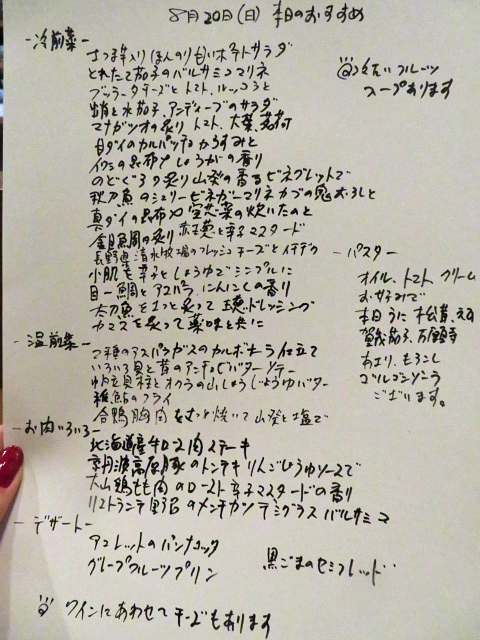 8月20日(日) 本日のおすすめ
-冷前菜-
さつま芋入り ほんのり甘いポテトサラダ
とれたて茄子のバルサミコマリネ
ブッラータチーズとトマト、ルッコラと
と水茄子、アンディーブのサラダ
マナガツオの炙り トマト、大葉、茗荷
白ダイのカルパッチョ からすみと
イワシの昆布〆 しょうがの香り
のどぐろの炙り 山葵の香るビネグレットで
秋刀魚のシェリービネガーマリネ カブの鬼おろしと
真ダイの昆布〆 空芯菜の炊いたのと
金目鯛の炙り 赤玉葱と辛子マスタード
長野県清水牧場のフレッシュチーズとイチヂク
小肌を辛子としょうゆでシンプルに
目一鯛とアスパラ にんにくの香り
太刀魚をさっと炙って 玉葱ドレッシング
カマスを炙って 薬味と共に
冷たいフルーツ
スープあります
-温前菜-
2種のアスパラガスのカルボナーラ仕立て
いろいろ貝と茸のアンチョビバターソテー
帆立貝柱とオクラの山しょうじょうゆバター
稚鮎のフライ
合鴨胸肉をさっと焼いて 山葵と塩で
-パスター
オイル、トマト、クリーム
お好みで
本日うに、松茸、
賀茂茄子、万願寺
あさり、もろこし
ゴルゴンゾーラ
ございます。
-お肉いろいろ-
北海道産牛ロース肉ステーキ
京丹波高原豚のトンテキ りんごじょうゆソースで
大山鶏もも肉のロースト 辛子マスタードの香り
リストランテ のメンチカツ デミグラス バルサミコ
-デザート-
アマレットのパンナコッタ
グレープフルーツプリン
黒ごまのセミフレッド・・
ワインにあわせて チーズもあります